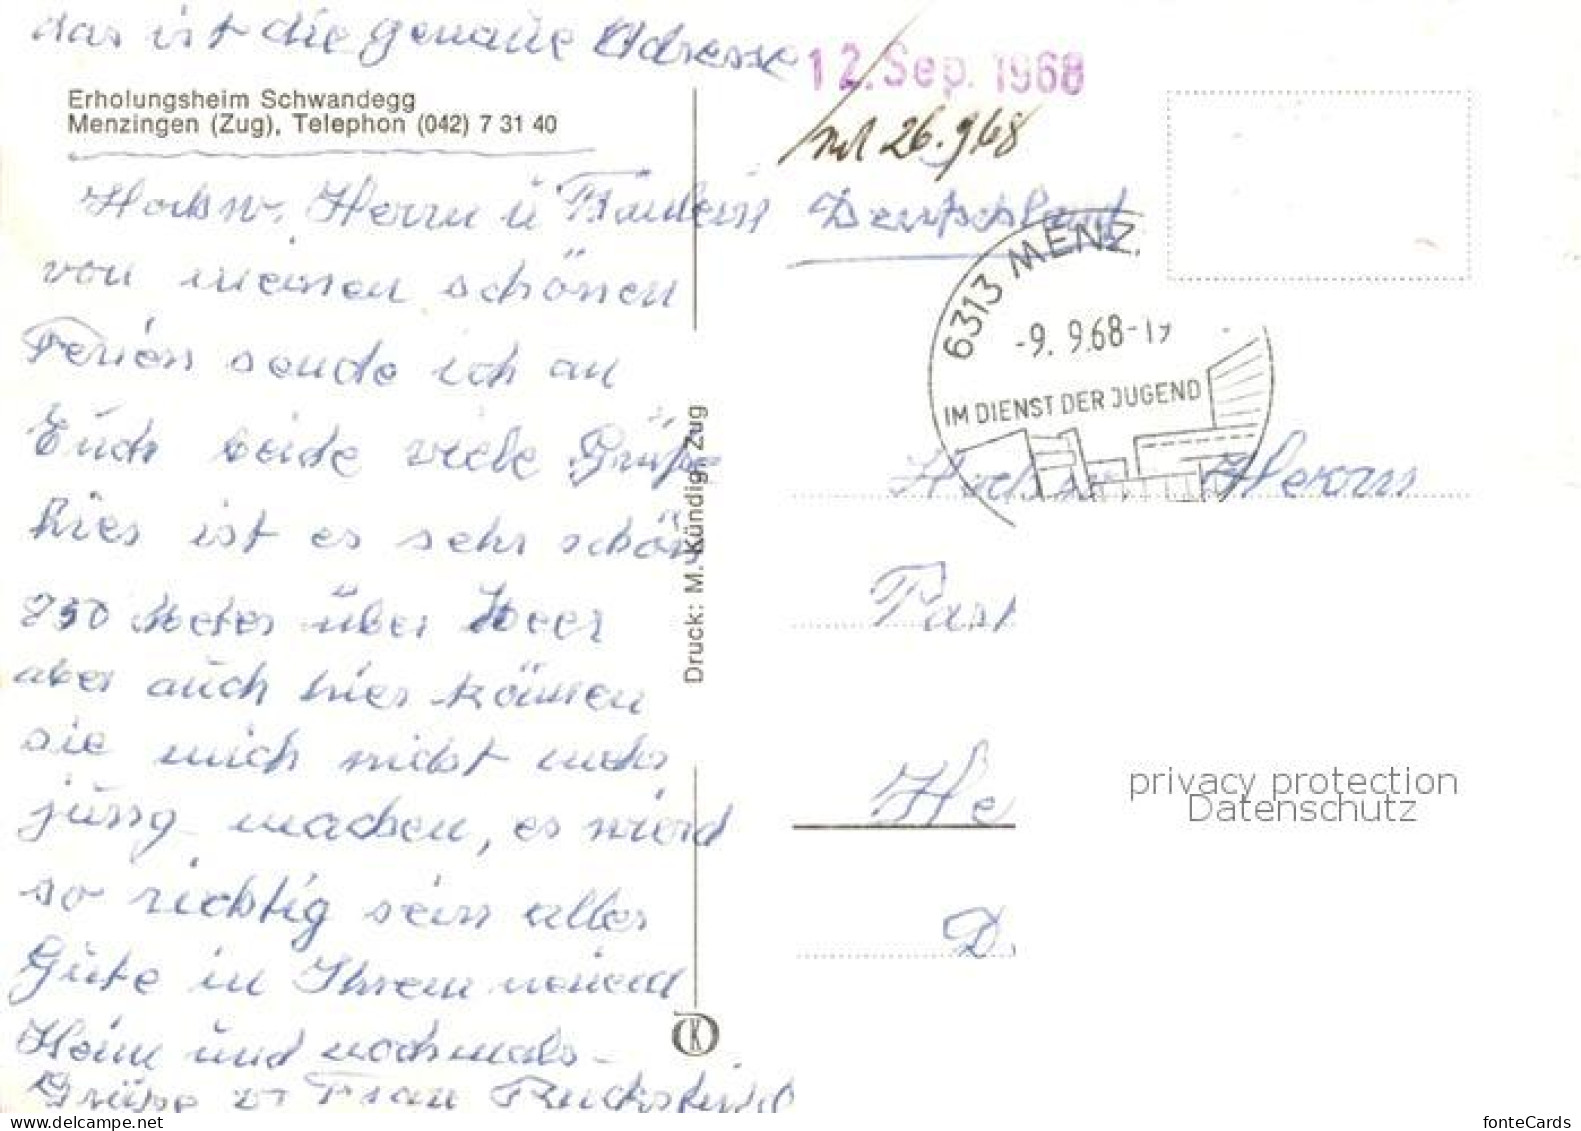 das ist die genaue Adresse
Erholungsheim Schwandegg
Menzingen (Zug), Telephon (042) 7 31 40
Hochw. Herrn ü Fräulein
von meinen schönen
Ferien sende ich an
Euch beide viele Grüße
hier ist es sehr schön
Meter über Meer
aber auch hier können
sie mich nicht mehr
jung machen, es wird
so richtig sein alles
Gute in Ihrem neuen
Heim und nochmals
Grüße v Frau
Druck: M. Kündig, Zug
12. Sep. 1968
26.9.68
Deutschland
6313 MENZ.
-9. 9.68-17
IM DIENST DER JUGEND
Hochw. Herrn
Pfarr
He
D.
privacy protection
Datenschutz
fonteCards